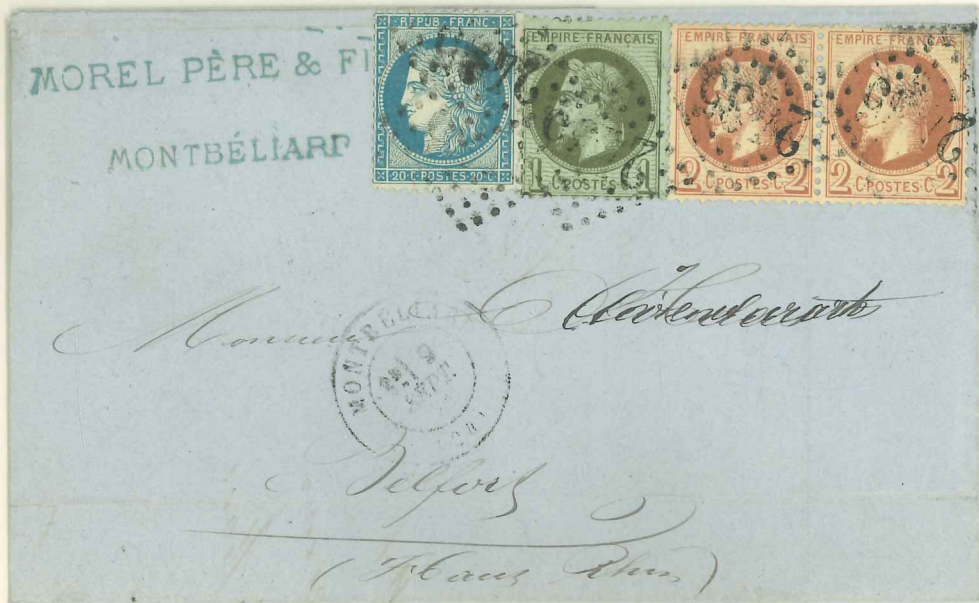 MOREL PÈRE & FI
MONTBÉLIARD
REPUB. FRANC.
20 C. POSTES. 20 C.
EMPIRE FRANÇAIS
1 C. POSTES
EMPIRE FRANÇAIS
2 C. POSTES. C. 2
EMPIRE FRANÇAIS
2 C. POSTES. C. 2
Monsieur
MONTBÉLI
9
Belfort
(Haut Rhin)